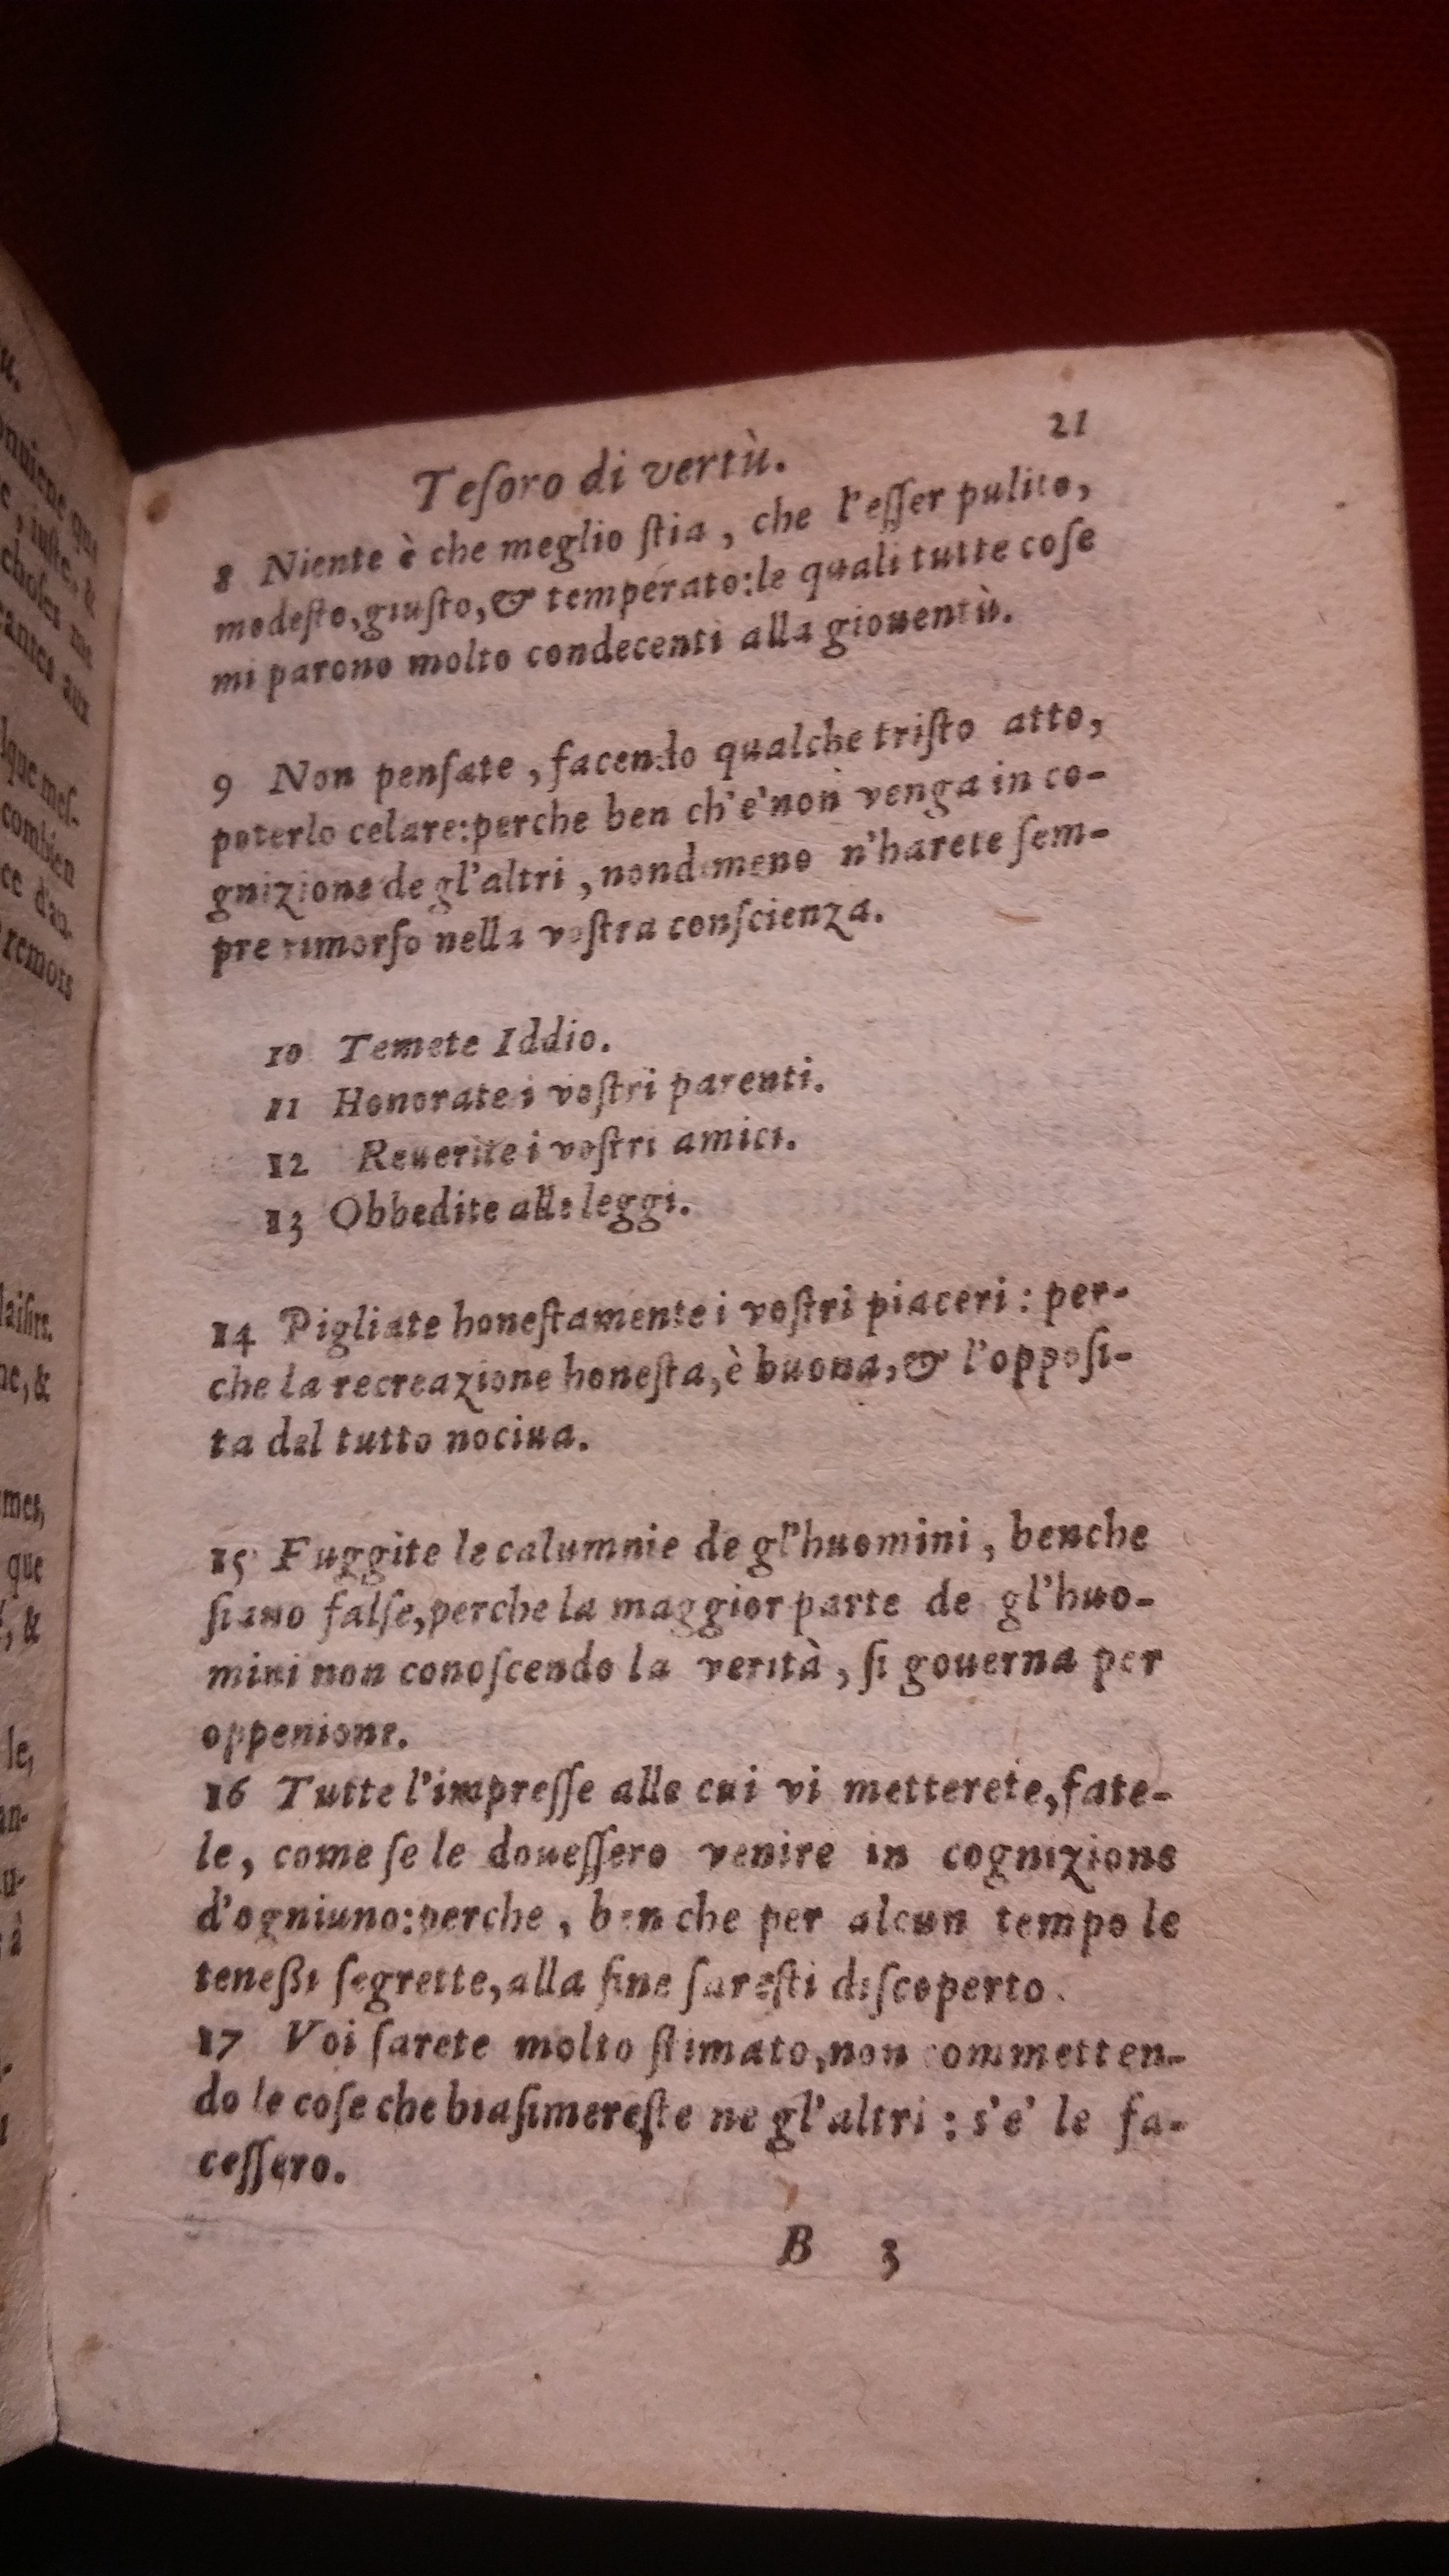 u.
onuiene que
e, iuste, &
choses me
antes aux
lque mes-
combien
ce d'au-
remors
laisirs.
ne, &
mes,
que
, &
le,
an-
u-
à
21
Tesoro di vertù.
8 Niente è che meglio ſtia, che l'eſſer pulito,
modeſto, giuſto, & temperato: le quali tutte coſe
mi parono molto condecenti alla giouentù.
9 Non penſate, facendo qualche triſto atto,
poterlo celare: perche ben ch'e' non venga in co-
gnizione de gl'altri, nondimeno n'harete ſem-
pre rimorſo nella voſtra conſcienza.
10 Temete Iddio.
11 Honorate i voſtri parenti.
12 Reuerite i voſtri amici.
13 Obbedite alle leggi.
14 Pigliate honeſtamente i voſtri piaceri: per-
che la recreazione honeſta, è buona, & l'oppoſi-
ta del tutto nociua.
15 Fuggite le calumnie de gl'huomini, benche
ſiano falſe, perche la maggior parte de gl'huo-
mini non conoſcendo la verità, ſi gouerna per
oppenione.
16 Tutte l'impreſſe alle cui vi metterete, fate-
le, come ſe le doueſſero venire in cognizione
d'ogniuno: perche, ben che per alcun tempo le
teneßi ſegrette, alla fine ſareſti diſcoperto.
17 Voi ſarete molto ſtimato, non commetten-
do le coſe che biaſimereſte ne gl'altri: s'e' le fa-
ceſſero.
B 3